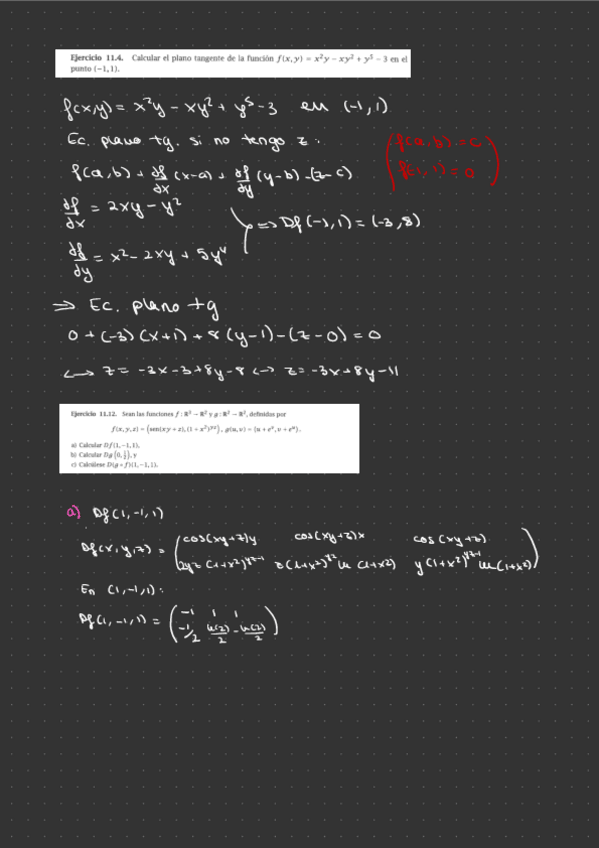 Ejercicio 11.4. Calcular el plano tangente de la función f(x, y) = x²y − xy² + y⁵ − 3 en el
punto (−1, 1).
f(x,y) = x²y − xy² + y⁵ − 3 en (-1, 1)
Ec. plano tg. si no tengo z:
f(a,b) + df/dx (x-a) + df/dy (y-b) - (z-c)
(f(a,b) = c
f(-1, 1) = 0)
df/dx = 2xy − y²
df/dy = x² − 2xy + 5y⁴
⇒ Df(-1, 1) = (-3, 8)
⇒ Ec. plano tg
0 + (-3) (x+1) + 8 (y-1) - (z-0) = 0
↔ z = -3x-3+8y-8 ↔ z = -3x+8y-11
Ejercicio 11.12. Sean las funciones f : ℝ³ → ℝ² y g : ℝ² → ℝ², definidas por
f(x, y, z) = (sen(xy + z), (1 + x²)^yz), g(u, v) = (u + e^v, v + e^u).
a) Calcular Df(1, −1, 1),
b) Calcular Dg (0, ½), y
c) Calcúlese D(g ∘ f)(1, −1, 1).
a) Df(1, -1, 1)
Df(x, y, z) = (cos(xy+z)y cos(xy+z)x cos(xy+z)
2yz (1+x²)^yz-1 z(1+x²)^yz ln(1+x²) y(1+x²)^yz-1 ln(1+x²))
En (1, -1, 1):
Df(1, -1, 1) = (-1 1 1
-1/2 ln(2)/2 -ln(2)/2)